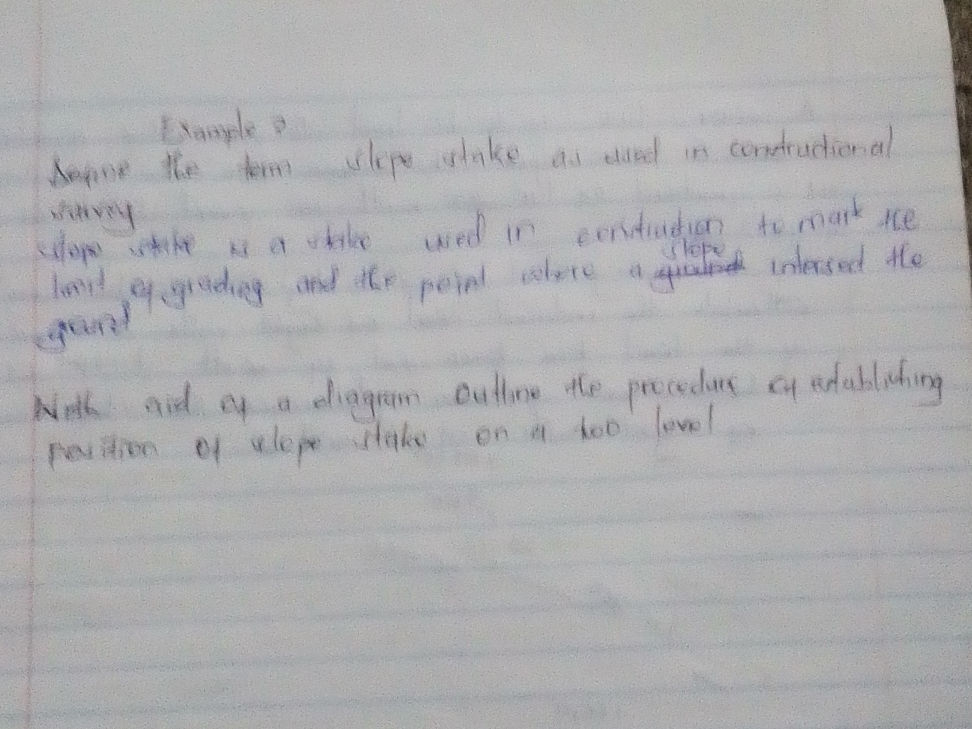 Example 2
Define the term slope stake as used in constructional
survey
slope stake is a stake used in construction to mark the
limit of grading and the point where a slope intersect the
ground
With aid of a diagram outline the procedure of establishing
position of slope stake on a too level